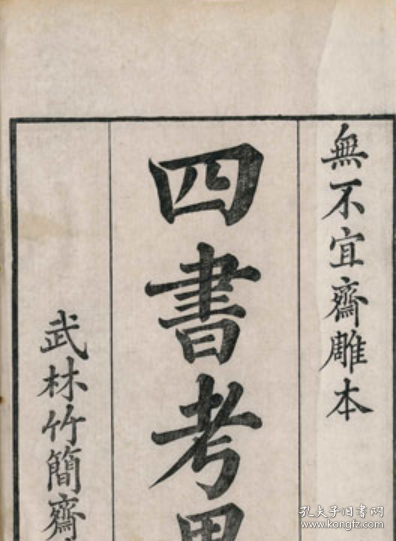 無不宜齋雕本
四書考
武林竹簡齋
孔夫子旧书网
www.kongfz.com